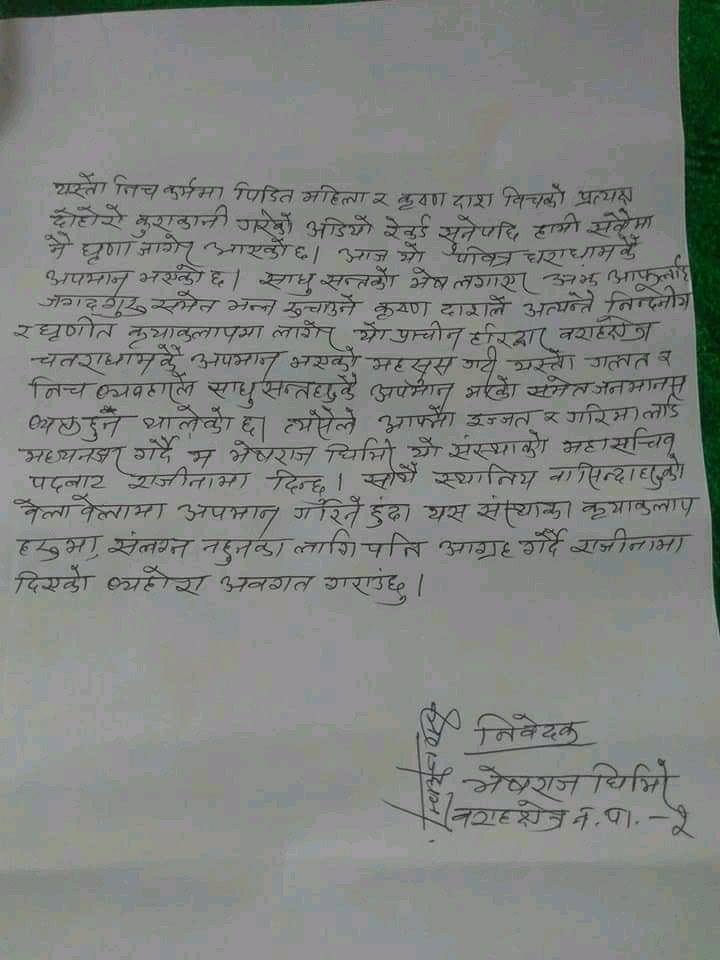 यस्तो निच कर्ममा पिडित महिला र कृष्ण दाश विचको प्रत्यक्ष
दोहोरो कुराकानी गरेको अडियो रेकर्ड सुनेपछि हामी सबैमा
नै घृणा जागेर आएको छ। आज यो पवित्र चराधामकै
अपमान भएको छ। साधु सन्तको भेष लगाएर अझ आफुलाई
जगदगुरु समेत भन्न रुचाउने कृष्ण दाशले अत्यन्तै निन्दनीय
र घृणीत कृयाकलापमा लागेर यो प्राचीन हरिद्वार वराहक्षेत्र
चतराधामकै अपमान भएको महसुस गरी यस्तो गलत र
निच व्यवहारले साधु सन्तहरुकै अपमान भएको समेत जनमानस
व्यक्त हुन थालेको छ। त्यसैले आफ्नो इज्जत र गरिमा लाई
मध्यनजर गर्दै म भेषराज घिमिरे यो संस्थाको महासचिव
पदबाट राजीनामा दिन्छु। साथै स्थानिय वासिन्दाहरुको
वेला वेलामा अपमान गरिने हुंदा यस संस्थाका कृयाकलाप
हरुमा संलग्न नहुनका लागि पनि आग्रह गर्दै राजीनामा
दिएको व्यहोरा अवगत गराउंछु।
निवेदक
भेषराज घिमिरे
वराहक्षेत्र न.पा. - १